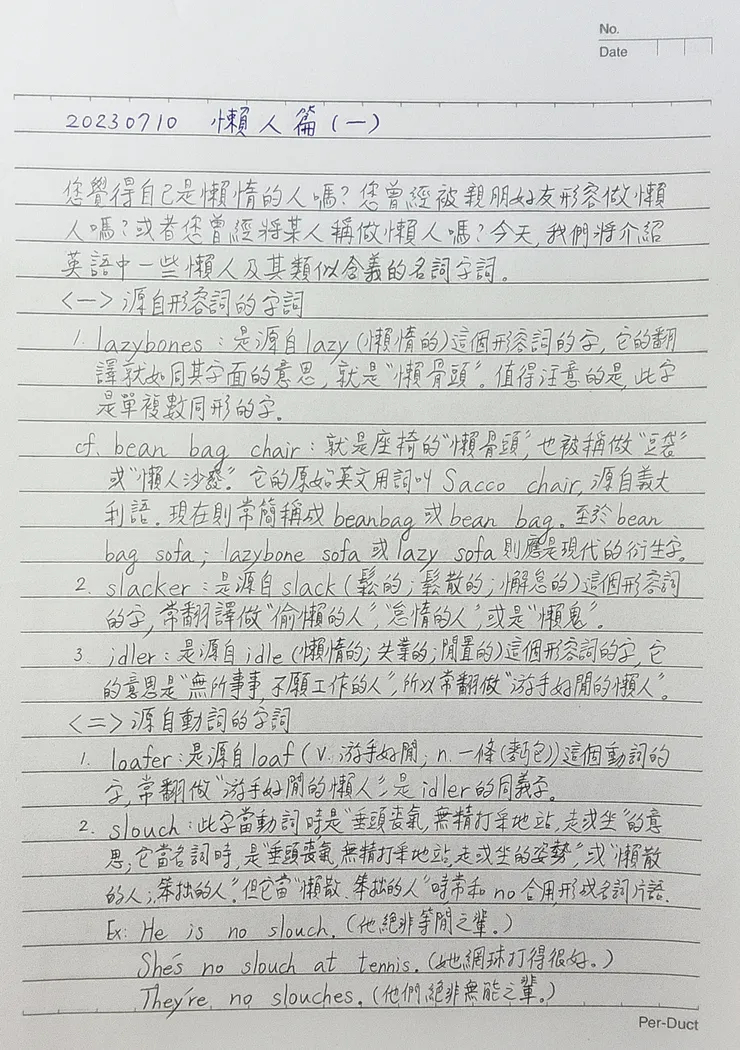 No.
Date
20230710 懶人篇(一)
您覺得自己是懶惰的人嗎?您曾經被親朋好友形容做懶
人嗎?或者您曾經將某人稱做懶人嗎?今天,我們將介紹
英語中一些懶人及其類似含義的名詞字詞。
<一>源自形容詞的字詞
1. lazybones:是源自lazy(懶惰的)這個形容詞的字,它的翻
譯就如同其字面的意思,就是"懶骨頭"。值得注意的是,此字
是單複數同形的字。
cf. bean bag chair:就是座椅的"懶骨頭",也被稱做"豆袋"
或"懶人沙發"。它的原始英文用詞叫Sacco chair,源自義大
利語。現在則常簡稱成beanbag或bean bag。至於bean
bag sofa; lazybone sofa或lazy sofa則應是現代的衍生字。
2. slacker:是源自slack(鬆的;鬆散的;懈怠的)這個形容詞
的字,常翻譯做"偷懶的人","怠惰的人",或是"懶鬼"。
3. idler:是源自idle(懶惰的;失業的;閒置的)這個形容詞的字,它
的意思是"無所事事,不願工作的人",所以常翻做"游手好閒的懶人"。
<二>源自動詞的字詞
1. loafer:是源自loaf(v.游手好閒;n.一條(麵包))這個動詞的
字,常翻做"游手好閒的懶人",是idler的同義字。
2. slouch:此字當動詞時是"垂頭喪氣,無精打采地站,走或坐"的意
思;它當名詞時,是"垂頭喪氣,無精打采地站,走或坐的姿勢",或"懶散
的人;笨拙的人"。但它當"懶散、笨拙的人"時常和no合用,形成名詞片語.
Ex: He is no slouch.(他絕非等閒之輩。)
She's no slouch at tennis.(她網球打得很好。)
They're no slouches.(他們絕非無能之輩。)
Per-Duct